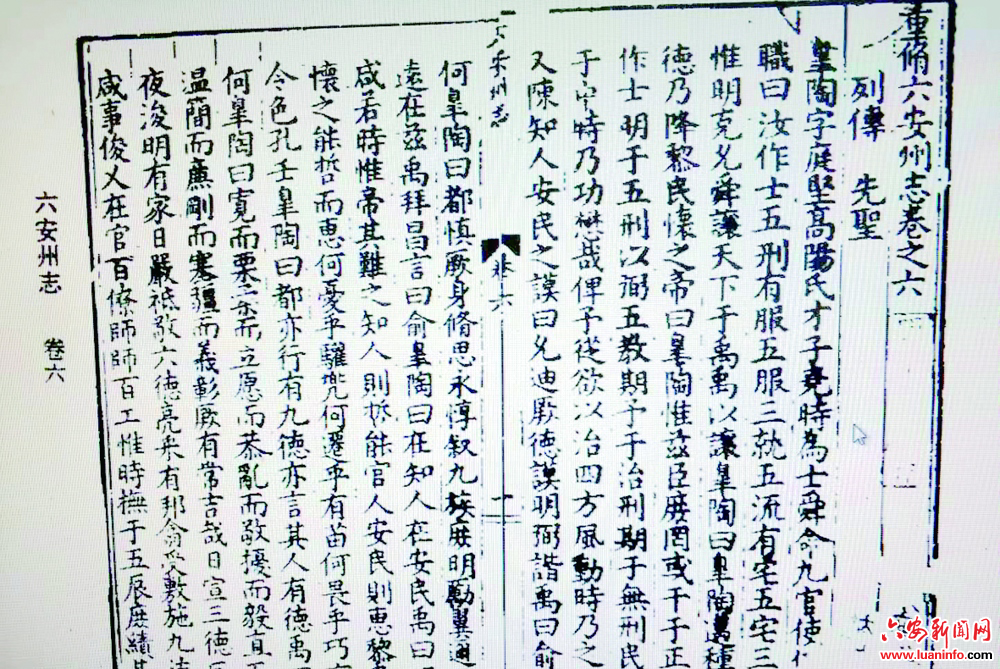 重脩六安州志卷之六
列傳 先聖
皋陶字庭堅高陽氏才子堯時為士舜命九官使
職曰汝作士五刑有服五服三就五流有宅五宅三
惟明克允舜讓天下于禹禹以讓皋陶曰皋陶邁種
德乃降黎民懷之帝曰皋陶惟茲臣庶罔或干予正
作士明于五刑以弼五教期于予治刑期于無刑民
于中時乃功懋哉俾予從欲以治四方風動時乃之
又陳知人安民之謨曰允迪厥德謨明弼諧禹曰俞
六安州志 卷六 一
何皋陶曰都慎厥身脩思永惇叙九族庶明勵翼邇
遠在茲禹拜昌言曰俞皋陶曰在知人在安民禹曰
咸若時惟帝其難之知人則哲能官人安民則惠黎
懷之能哲而惠何憂乎驩兜何遷乎有苗何畏乎巧
令色孔壬皋陶曰都亦行有九德亦言其人有德禹
何皋陶曰寬而栗柔而立愿而恭亂而敬擾而毅直
温簡而廉剛而塞彊而義彰厥有常吉哉日宣三德
夜浚明有家日嚴祗敬六德亮采有邦翕受敷施九
咸事俊乂在官百僚師師百工惟時撫于五辰庶績
六安州志 卷六
六安新闻网
www.luaninfo.com